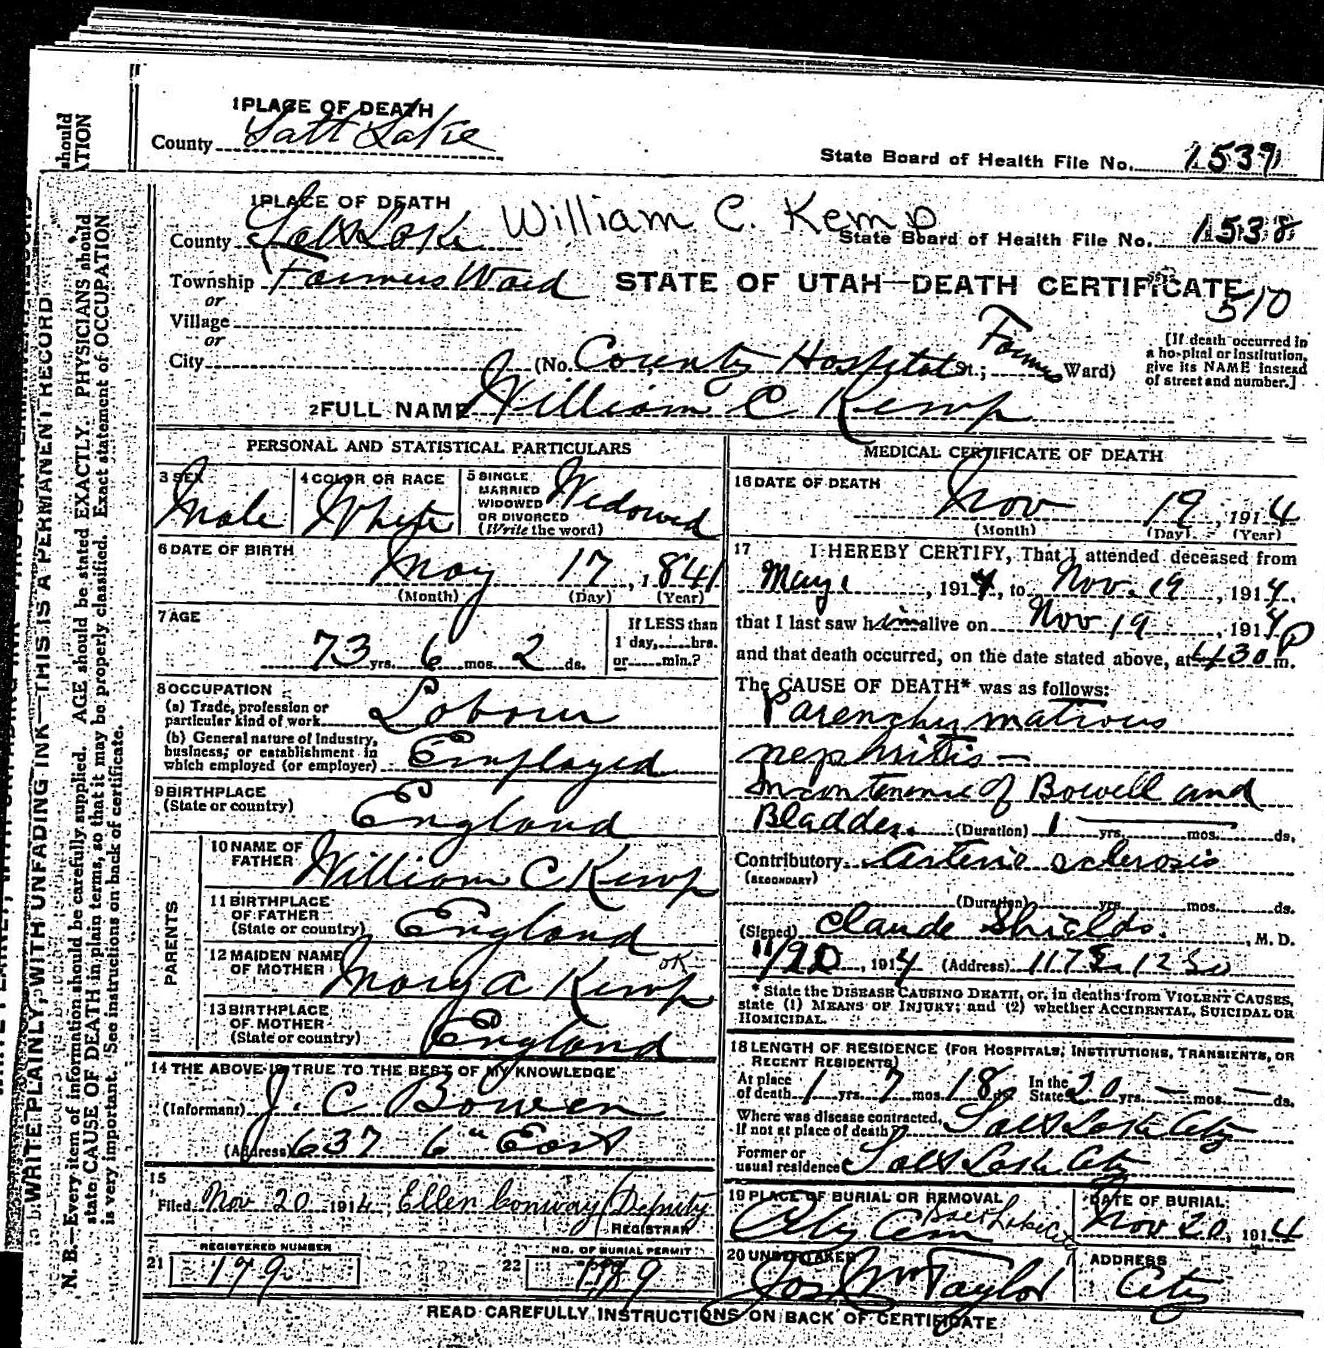 1 PLACE OF DEATH
County Salt Lake
State Board of Health File No. 1539
should
ATION
1 PLACE OF DEATH
William C. Kemp
County Salt Lake
State Board of Health File No. 1538
Township Farmers Ward
STATE OF UTAH—DEATH CERTIFICATE
510
or
Village
or
City
(No. County Hospital St.; Farmers Ward)
[If death occurred in
a hospital or institution,
give its NAME instead
of street and number.]
2 FULL NAME William C Kemp
PERSONAL AND STATISTICAL PARTICULARS
3 SEX
Male
4 COLOR OR RACE
White
5 SINGLE
MARRIED
WIDOWED
OR DIVORCED
(Write the word)
Widowed
6 DATE OF BIRTH
May 17, 1841
(Month) (Day) (Year)
7 AGE
73 yrs. 6 mos. 2 ds.
If LESS than
1 day, hrs.
or min.?
8 OCCUPATION
(a) Trade, profession or
particular kind of work Labour
(b) General nature of industry,
business, or establishment in
which employed (or employer) Employed
9 BIRTHPLACE
(State or country) England
PARENTS
10 NAME OF
FATHER William C Kemp
11 BIRTHPLACE
OF FATHER
(State or country) England
12 MAIDEN NAME
OF MOTHER Mary A Kemp OK
13 BIRTHPLACE
OF MOTHER
(State or country) England
14 THE ABOVE IS TRUE TO THE BEST OF MY KNOWLEDGE
(Informant) J. C Bowen
(Address) 637 6th East
15
Filed Nov 20 1914 Ellen Conway/Deputy
REGISTRAR
21 REGISTERED NUMBER
179
22 NO. OF BURIAL PERMIT
MEDICAL CERTIFICATE OF DEATH
16 DATE OF DEATH
Nov 19, 1914
(Month) (Day) (Year)
17 I HEREBY CERTIFY, That I attended deceased from
May 1, 1914, to Nov. 19, 1914,
that I last saw him alive on Nov 19, 1914
and that death occurred, on the date stated above, at 430 P m.
The CAUSE OF DEATH* was as follows:
Parenchymatious
nephritis —
Incontenense of Bowell and
Bladder. (Duration) 1 yrs. mos. ds.
Contributory Arterio sclerosis
(SECONDARY)
(Duration) yrs. mos. ds.
(Signed) Claude Shields, M. D.
11/20, 1914 (Address) 1178 E. 12 So
* State the DISEASE CAUSING DEATH, or, in deaths from VIOLENT CAUSES,
state (1) MEANS OF INJURY; and (2) whether ACCIDENTAL, SUICIDAL OR
HOMICIDAL.
18 LENGTH OF RESIDENCE (FOR HOSPITALS, INSTITUTIONS, TRANSIENTS, OR
RECENT RESIDENTS)
At place
of death 1 yrs. 7 mos. 18 ds. In the
State 20 yrs. — mos. — ds.
Where was disease contracted,
if not at place of death? Salt Lake City
Former or
usual residence Salt Lake City
19 PLACE OF BURIAL OR REMOVAL
City Cem Salt Lake City
DATE OF BURIAL
Nov 20, 1914
20 UNDERTAKER
Jos Wm Taylor
ADDRESS
City
READ CAREFULLY INSTRUCTIONS ON BACK OF CERTIFICATE
WRITE PLAINLY, WITH UNFADING INK—THIS IS A PERMANENT RECORD
N. B.—Every item of information should be carefully supplied. AGE should be stated EXACTLY. PHYSICIANS should
state CAUSE OF DEATH in plain terms, so that it may be properly classified. Exact statement of OCCUPATION
is very important. See instructions on back of certificate.